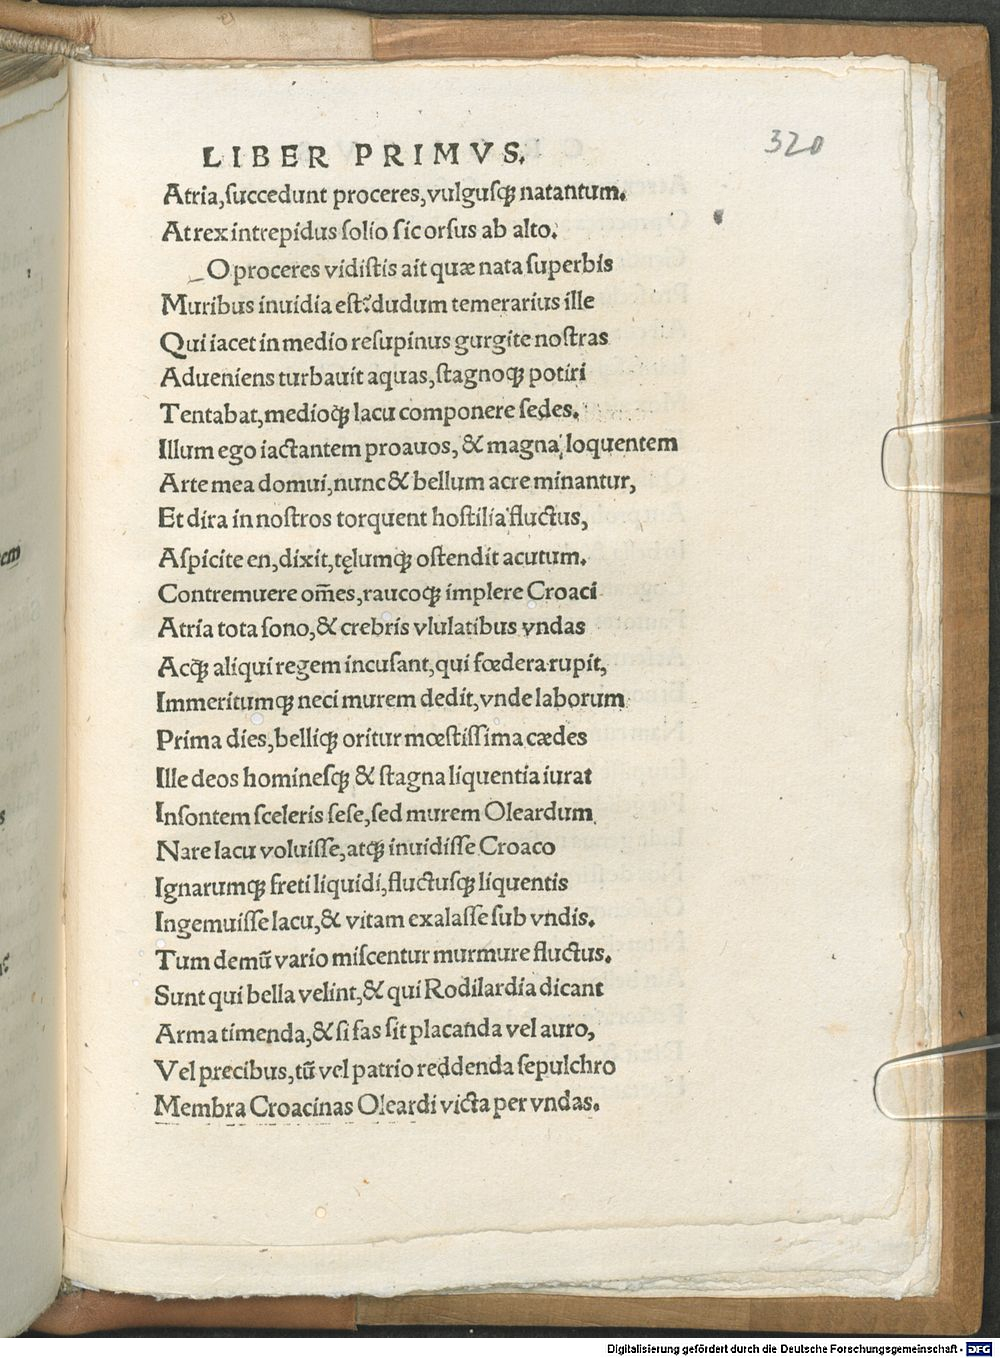 320
LIBER PRIMVS.
Atria,ſuccedunt proceres,vulguſqꝫ natantum.
At rex intrepidus ſolio ſic orſus ab alto.
O proceres vidiſtis ait quæ nata ſuperbis
Muribus inuidia eſt? dudum temerarius ille
Qui iacet in medio reſupinus gurgite noſtras
Adueniens turbauit aquas,ſtagnoqꝫ potiri
Tentabat,medioqꝫ lacu componere ſedes.
Illum ego iactantem proauos, & magna loquentem
Arte mea domui,nunc & bellum acre minantur,
Et dira in noſtros torquent hoſtilia fluctus,
Aſpicite en,dixit,tęlumqꝫ oſtendit acutum.
Contremuere om̄es,raucoqꝫ implere Croaci
Atria tota ſono,& crebris vlulatibus vndas
Acqꝫ aliqui regem incuſant,qui fœdera rupit,
Immeritumqꝫ neci murem dedit,vnde laborum
Prima dies,belliqꝫ oritur mœſtiſſima cædes
Ille deos homineſqꝫ & ſtagna liquentia iurat
Inſontem ſceleris ſeſe,ſed murem Oleardum
Nare lacu voluiſſe,atqꝫ inuidiſſe Croaco
Ignarumqꝫ freti liquidi,fluctuſqꝫ liquentis
Ingemuiſſe lacu,& vitam exalaſſe ſub vndis.
Tum demū vario miſcentur murmure fluctus.
Sunt qui bella velint,& qui Rodilardia dicant
Arma timenda,& ſi fas ſit placanda vel auro,
Vel precibus,tū vel patrio reddenda ſepulchro
Membra Croacinas Oleardi victa per vndas.
Digitalisierung gefördert durch die Deutsche Forschungsgemeinschaft - DFG